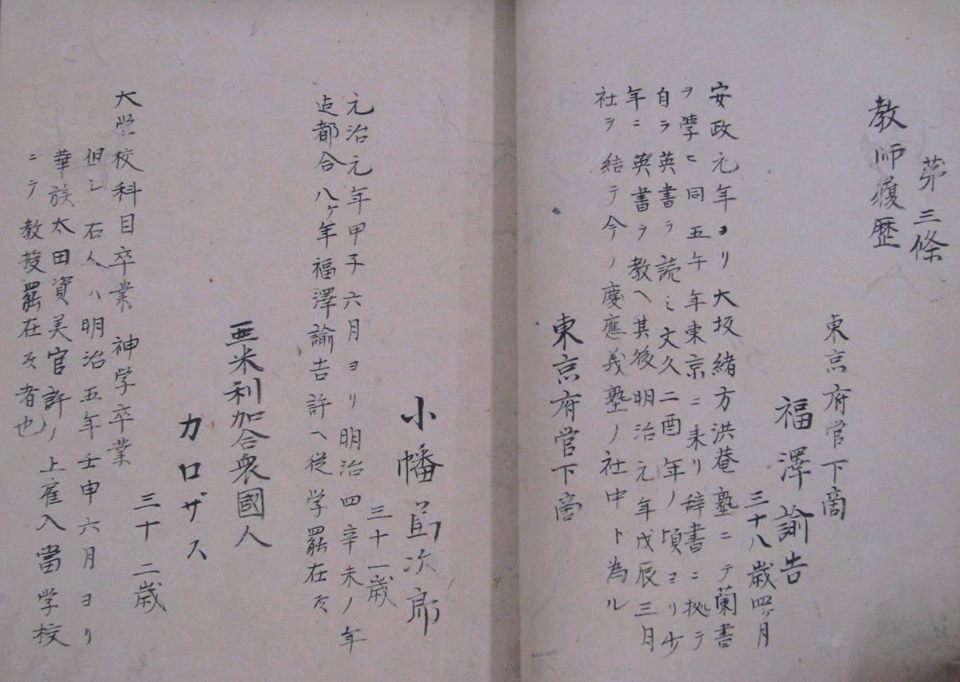 第三條
教師履歴
東京府管下商
福澤諭吉
三十八歳四ヶ月
安政元年ヨリ大坂緒方洪菴塾ニテ蘭書
ヲ學ヒ同五午年東京ニ来リ辞書ニ拠テ
自ラ英書ヲ読ミ文久二酉年ノ頃ヨリ少
年ニ英書ヲ教ヘ其後明治元年戊辰三月
社ヲ結テ今ノ慶應義塾ノ社中ト為ル
東京府管下商
小幡篤次郎
三十一歳
元治元年甲子六月ヨリ明治四辛未ノ年
迠都合八ヶ年福澤諭吉許ヘ従学罷在候
亜米利加合衆國人
カロザス
三十二歳
大学校科目卒業 神学卒業
但シ右人ハ明治五年壬申六月ヨリ
華族太田資美官許ノ上雇入當学校
ニテ教授罷在候者也